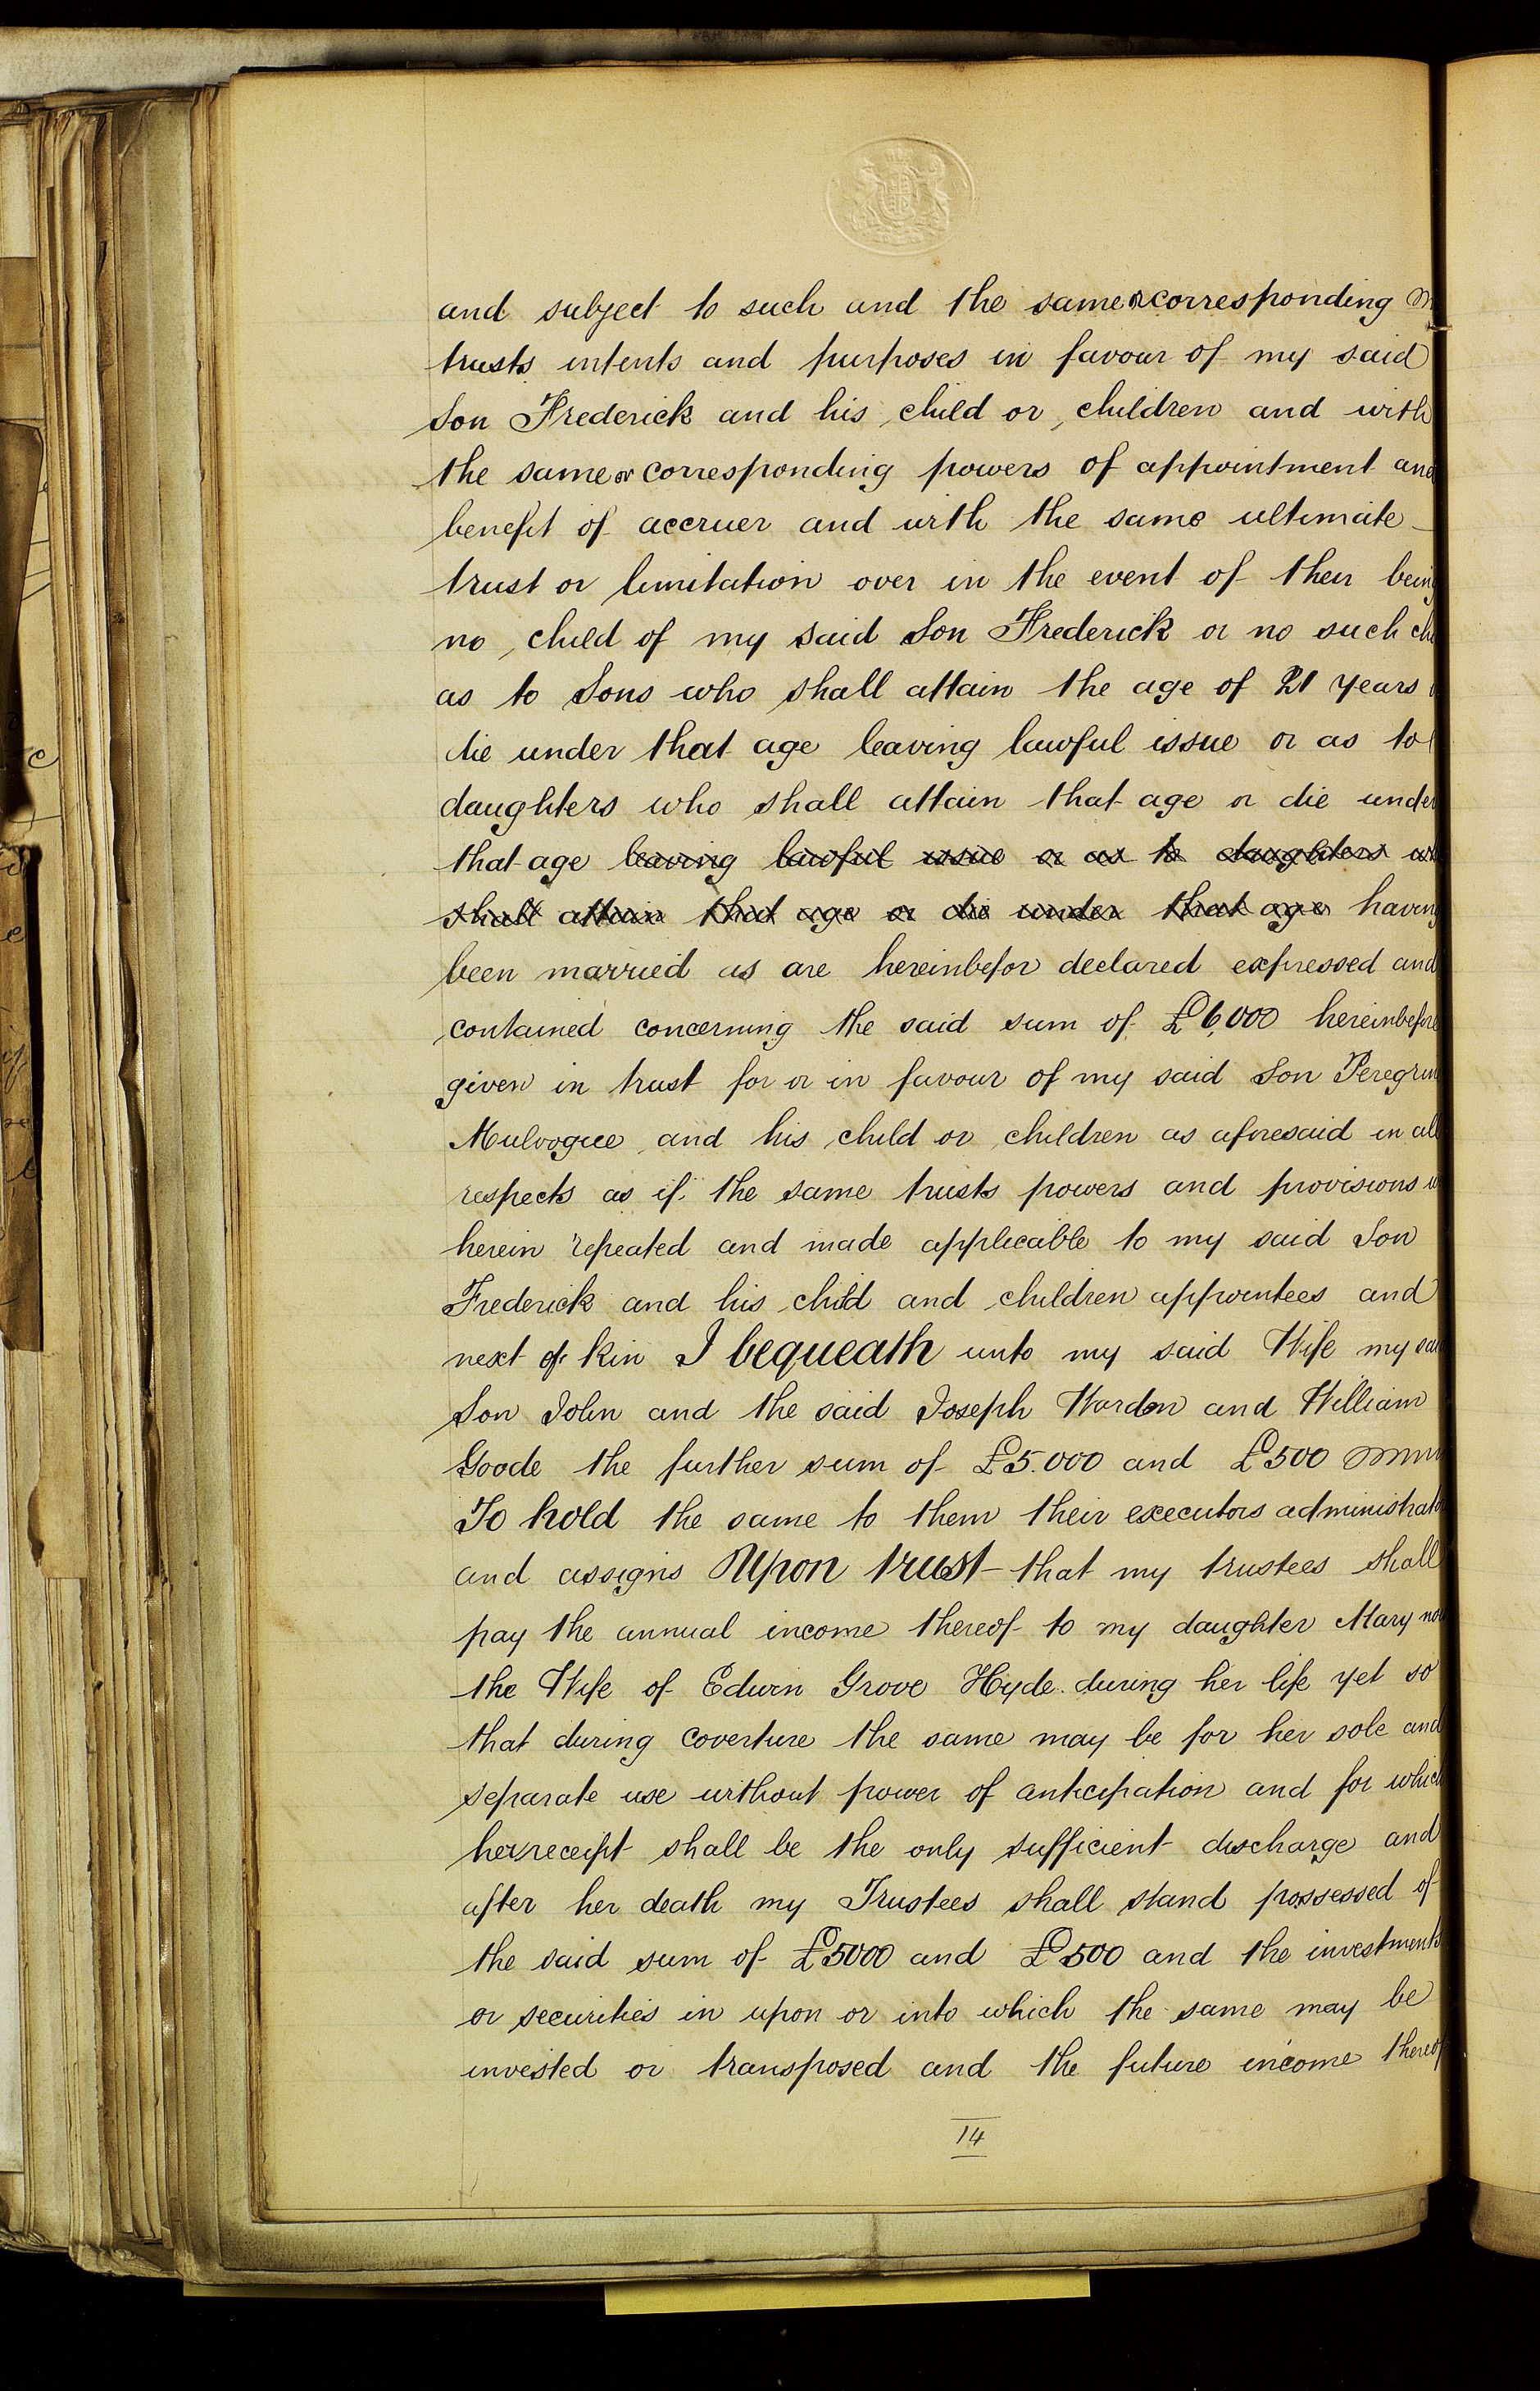 and subject to such and the same or corresponding
trusts intents and purposes in favour of my said
Son Frederick and his child or children and with
the same or corresponding powers of appointment and
benefit of accruer and with the same ultimate
trust or limitation over in the event of their being
no child of my said Son Frederick or no such ch
as to Sons who shall attain the age of 21 years
die under that age leaving lawful issue or as to
daughters who shall attain that age or die under
that age leaving lawful issue or as to daughters w
shall attain that age or die under that age having
been married as are hereinbefor declared expressed and
contained concerning the said sum of £6,000 hereinbefore
given in trust for or in favour of my said Son Peregrin
Mulvogue and his child or children as aforesaid in all
respects as if the same trusts powers and provisions w
herein repeated and made applicable to my said Son
Frederick and his child and children appointees and
next of kin I bequeath unto my said Wife my said
Son John and the said Joseph Wardon and William
Goode the further sum of £5.000 and £500
To hold the same to them their executors administrato
and assigns Upon trust that my trustees shall
pay the annual income thereof to my daughter Mary now
the Wife of Edwin Grove Hyde during her life yet so
that during coverture the same may be for her sole and
separate use without power of anticipation and for which
her receipt shall be the only sufficient discharge and
after her death my Trustees shall stand possessed of
the said sum of £5000 and £500 and the investments
or securities in upon or into which the same may be
invested or transposed and the future income thereof
14